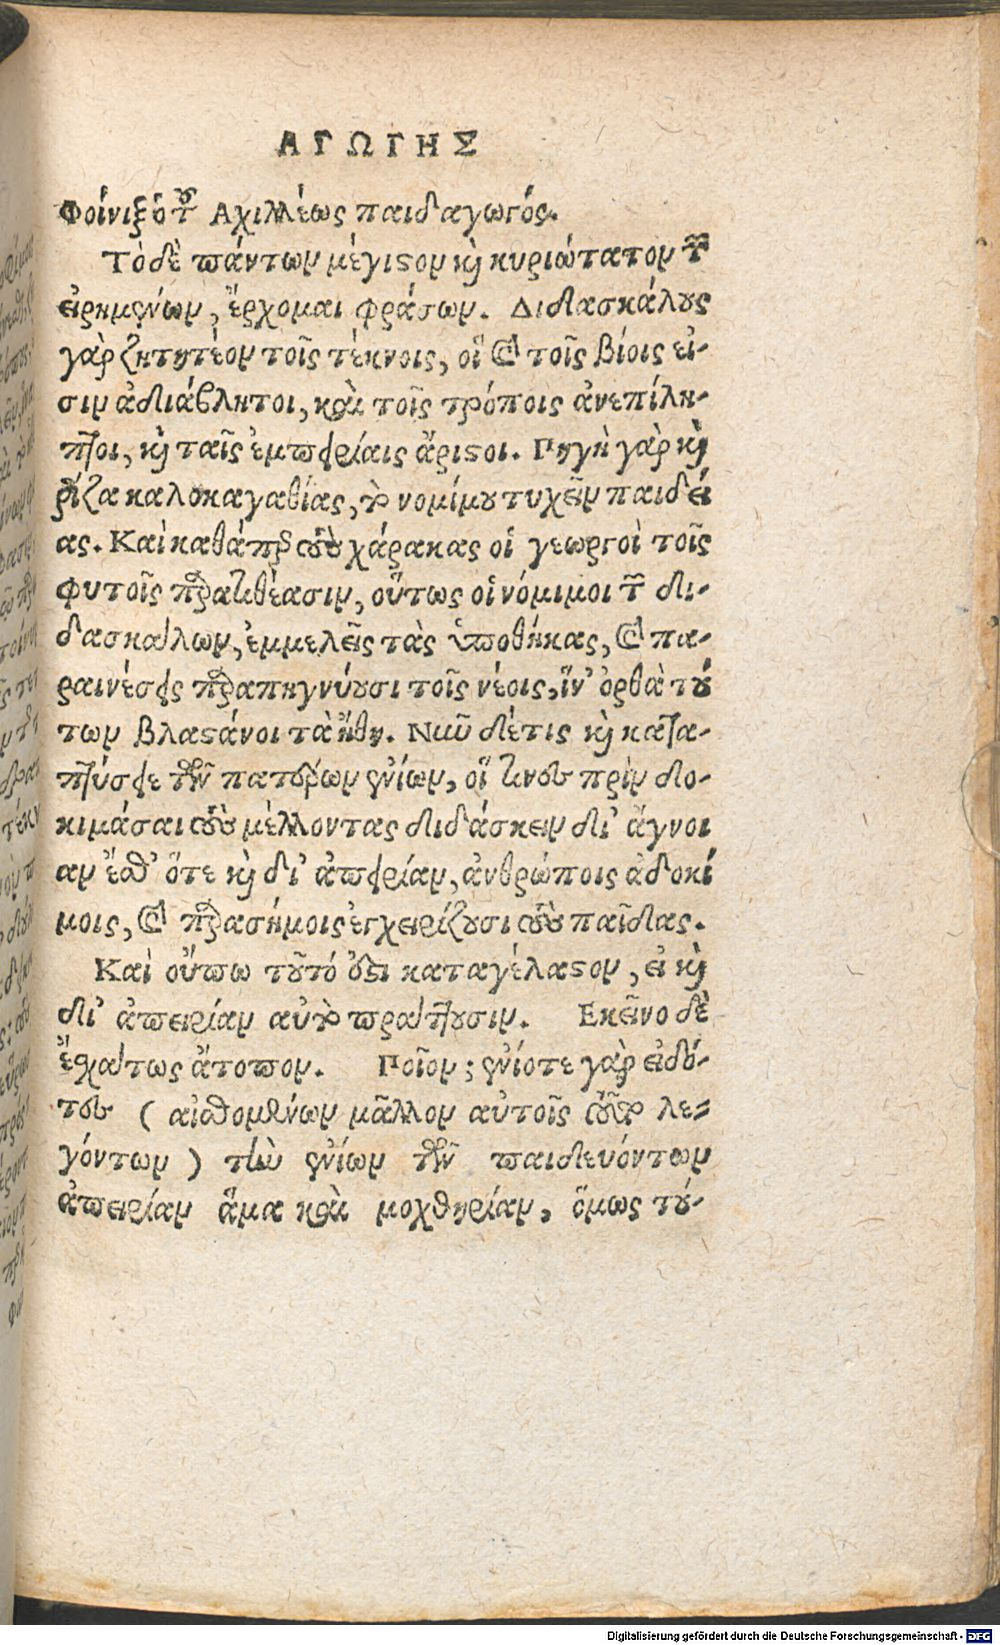 ΑΓΩΓΗΣ
Φοίνιξ ὁ τοῦ Ἀχιλλέως παιδαγωγός.
Τὸ δὲ πάντων μέγιστον καὶ κυριώτατον τῶν
εἰρημένων, ἔρχομαι φράσων. Διδασκάλους
γὰρ ζητητέον τοῖς τέκνοις, οἳ καὶ τοῖς βίοις εἰ-
σιν ἀδιάβλητοι, καὶ τοῖς τρόποις ἀνεπίλη-
πτοι, καὶ ταῖς ἐμπειρίαις ἄριστοι. Πηγὴ γὰρ καὶ
ῥίζα καλοκαγαθίας, τὸ νομίμου τυχεῖν παιδεί
ας. Καὶ καθάπερ τοὺς χάρακας οἱ γεωργοὶ τοῖς
φυτοῖς παρατιθέασιν, οὕτως οἱ νόμιμοι τῶν δι-
δασκάλων, ἐμμελεῖς τὰς ὑποθήκας, καὶ πα-
ραινέσεις παραπηγνύουσι τοῖς νέοις, ἵν' ὀρθὰ τού
των βλαστάνοι τὰ ἤθη. Νῦν δέ τις καὶ κατα-
πτύσειε τῶν πατέρων ἐνίων, οἵ τινες πρὶν δο-
κιμάσαι τοὺς μέλλοντας διδάσκειν δι' ἄγνοι
αν ἔσθ' ὅτε καὶ δι' ἀπειρίαν, ἀνθρώποις ἀδοκί
μοις, καὶ παρασήμοις ἐγχειρίζουσι τοὺς παῖδας.
Καὶ οὔπω τοῦτό ἐστι καταγέλαστον, εἰ καὶ
δι' ἀπειρίαν αὐτὸ πράττουσιν. Ἐκεῖνο δὲ
ἐσχάτως ἄτοπον. Ποῖον; ἐνίοτε γὰρ εἰδό-
τες ( αἰσθομένων μᾶλλον αὐτοῖς τοῦτο λε-
γόντων ) τὴν ἐνίων τῶν παιδευόντων
ἀπειρίαν ἅμα καὶ μοχθηρίαν, ὅμως τού-
Digitalisierung gefördert durch die Deutsche Forschungsgemeinschaft - DFG